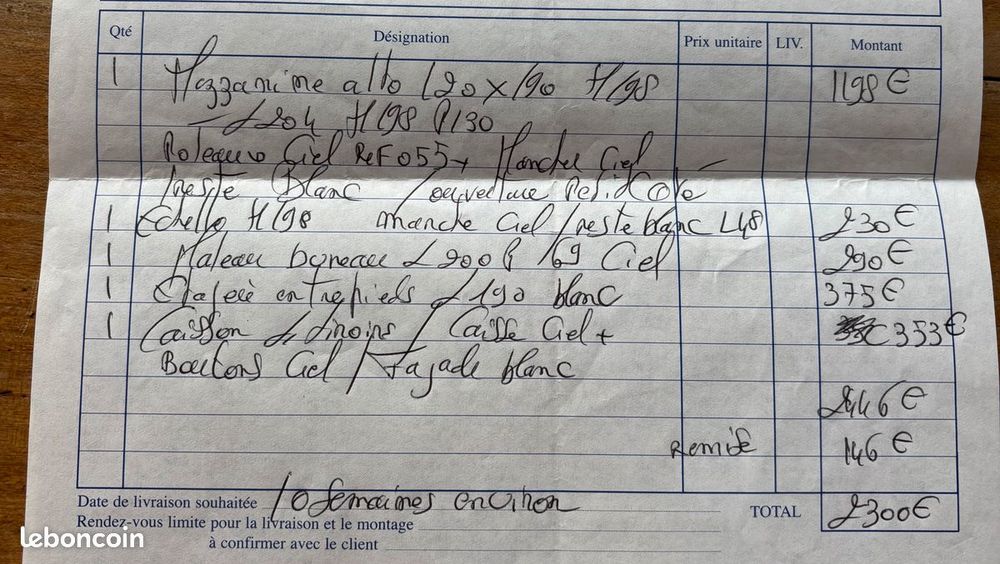 Qté Désignation Prix unitaire LIV. Montant
1 Mezzanine alto 120 x 190 H198 1198 €
L204 H198 P130
Poteaux Ciel Ref 055 + Planches Ciel
reste blanc / ouverture Petit Coté
1 Echelle H198 manche Ciel / reste blanc L48 230 €
1 Plateau bureau L200 P 69 Ciel 290 €
1 Etagère entrepieds L190 blanc 375 €
1 Caisson 2 tiroirs / Caisse Ciel + 353 €
Boutons Ciel / façade blanc
2446 €
Remise 146 €
Date de livraison souhaitée 10 semaines environ TOTAL 2300 €
Rendez-vous limite pour la livraison et le montage
à confirmer avec le client
leboncoin